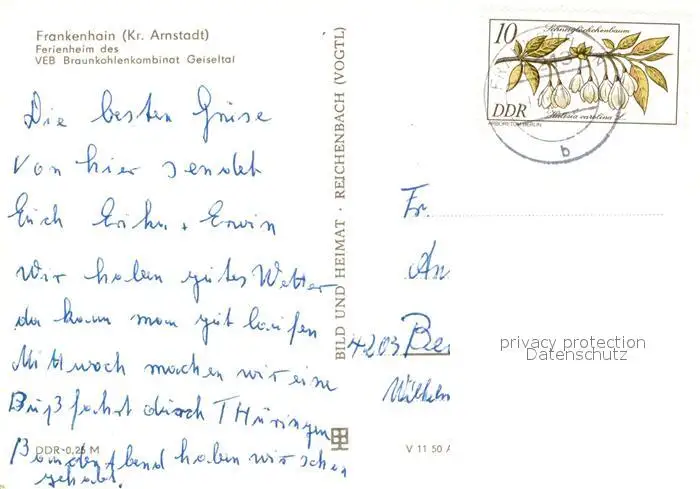 Frankenhain (Kr. Arnstadt)
Ferienheim des
VEB Braunkohlenkombinat Geiseltal
Die besten Grüse
von hier sendet
Euch Erwin
Wir haben gutes Wetter
da kann man gut laufen
Mittwoch machen wir eine
Bußfahrt durch THüringen
Bunden Abend haben wir schon
gehabt.
DDR-0,25 M
BILD UND HEIMAT · REICHENBACH (VOGTL)
V 11 50 A
10
Schneeglöckchenbaum
DDR
Halesia carolina L.
ARBORETUM BERLIN
b
Fr.
An
4203 Be
Wilhelm
privacy protection
Datenschutz